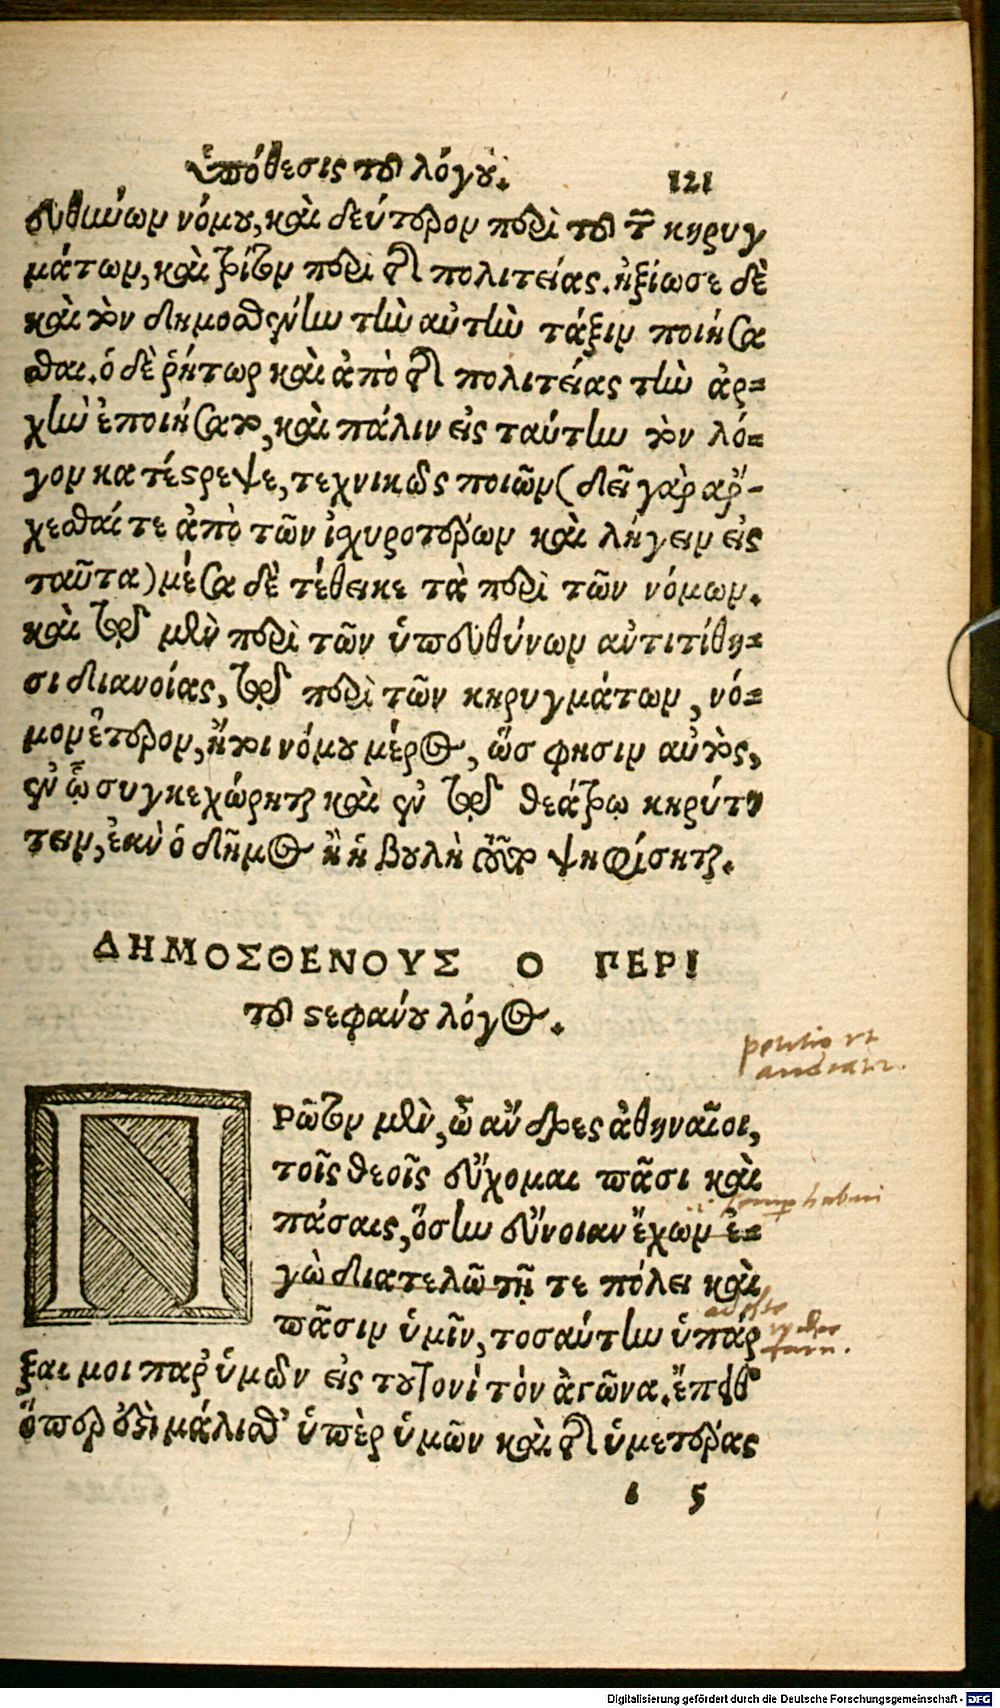 Ὑπόθεσις τοῦ λόγου. 121
ευθιώων νόμου, καὶ δεύτερον περὶ τοῦ τῶν κηρυγ
μάτων, καὶ τρίτον περὶ τῆς πολιτείας. ἠξίωσε δὲ
καὶ τὸν δημοσθένην τὴν αὐτὴν τάξιν ποιήσα
σθαι. ὁ δὲ ῥήτωρ καὶ ἀπὸ τῆς πολιτείας τὴν ἀρ=
χὴν ἐποιήσατο, καὶ πάλιν εἰς ταύτην τὸν λό=
γον κατέστρεψε, τεχνικῶς ποιῶν (δεῖ γὰρ ἄρ-
χεσθαί τε ἀπὸ τῶν ἰσχυροτέρων καὶ λήγειν εἰς
ταῦτα) μέσα δὲ τέθεικε τὰ περὶ τῶν νόμων.
καὶ τῷ μὲν περὶ τῶν ὑπευθύνων αντιτίθη=
σι διανοίας, τῷ περὶ τῶν κηρυγμάτων, νό=
μον ἕτερον, ἤτοι νόμου μέρος, ὥς φησιν αὐτὸς,
ἐν ᾧ συγκεχώρηται καὶ ἐν τῷ θεάτρῳ κηρύτ
τειν, ἐὰν ὁ δῆμος ἢ ἡ βουλὴ τοῦτο ψηφίσηται.
ΔΗΜΟΣΘΕΝΟΥΣ Ο ΠΕΡΙ
τοῦ στεφάνου λόγος.
petitio et
ΠΡῶτον μὲν, ὦ ἄνδρες ἀθηναῖοι,
τοῖς θεοῖς εὔχομαι πᾶσι καὶ
πάσαις, ὅσην εὔνοιαν ἔχων ἐ=
γὼ διατελῶ τῇ τε πόλει καὶ
πᾶσιν ὑμῖν, τοσαύτην ὑπάρ
ξαι μοι παρ' ὑμῶν εἰς τουτονὶ τὸν ἀγῶνα. ἔπειθ'
ὅπερ ἐστὶ μάλισθ' ὑπὲρ ὑμῶν καὶ τῆς ὑμετέρας
ι 5
Digitalisierung gefördert durch die Deutsche Forschungsgemeinschaft - DFG